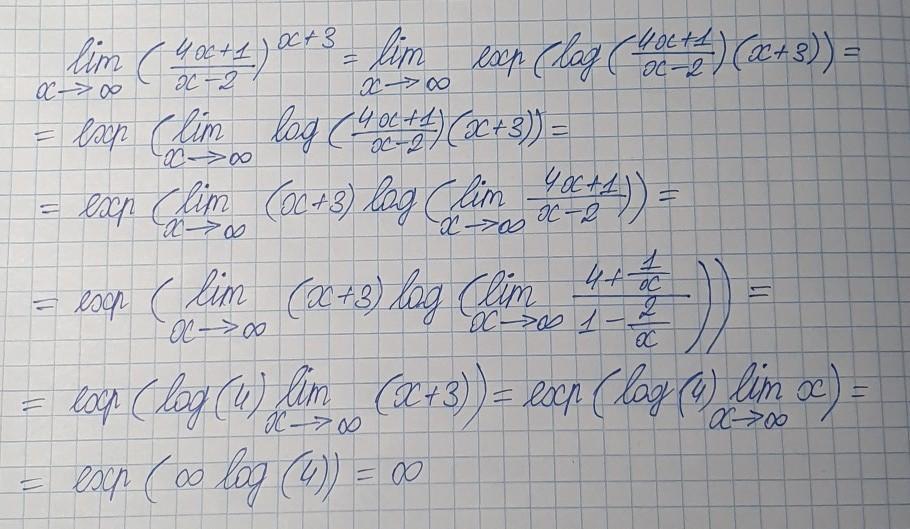 lim x→∞ (4x+1/x-2)^x+3 = lim x→∞ exp (log (4x+1/x-2) (x+3)) =
= exp (lim x→∞ log (4x+1/x-2) (x+3)) =
= exp (lim x→∞ (x+3) log (lim x→∞ 4x+1/x-2)) =
= exp (lim x→∞ (x+3) log (lim x→∞ 4+1/x / 1-2/x)) =
= exp (log (4) lim x→∞ (x+3)) = exp (log (4) lim x→∞ x) =
= exp (∞ log (4)) = ∞